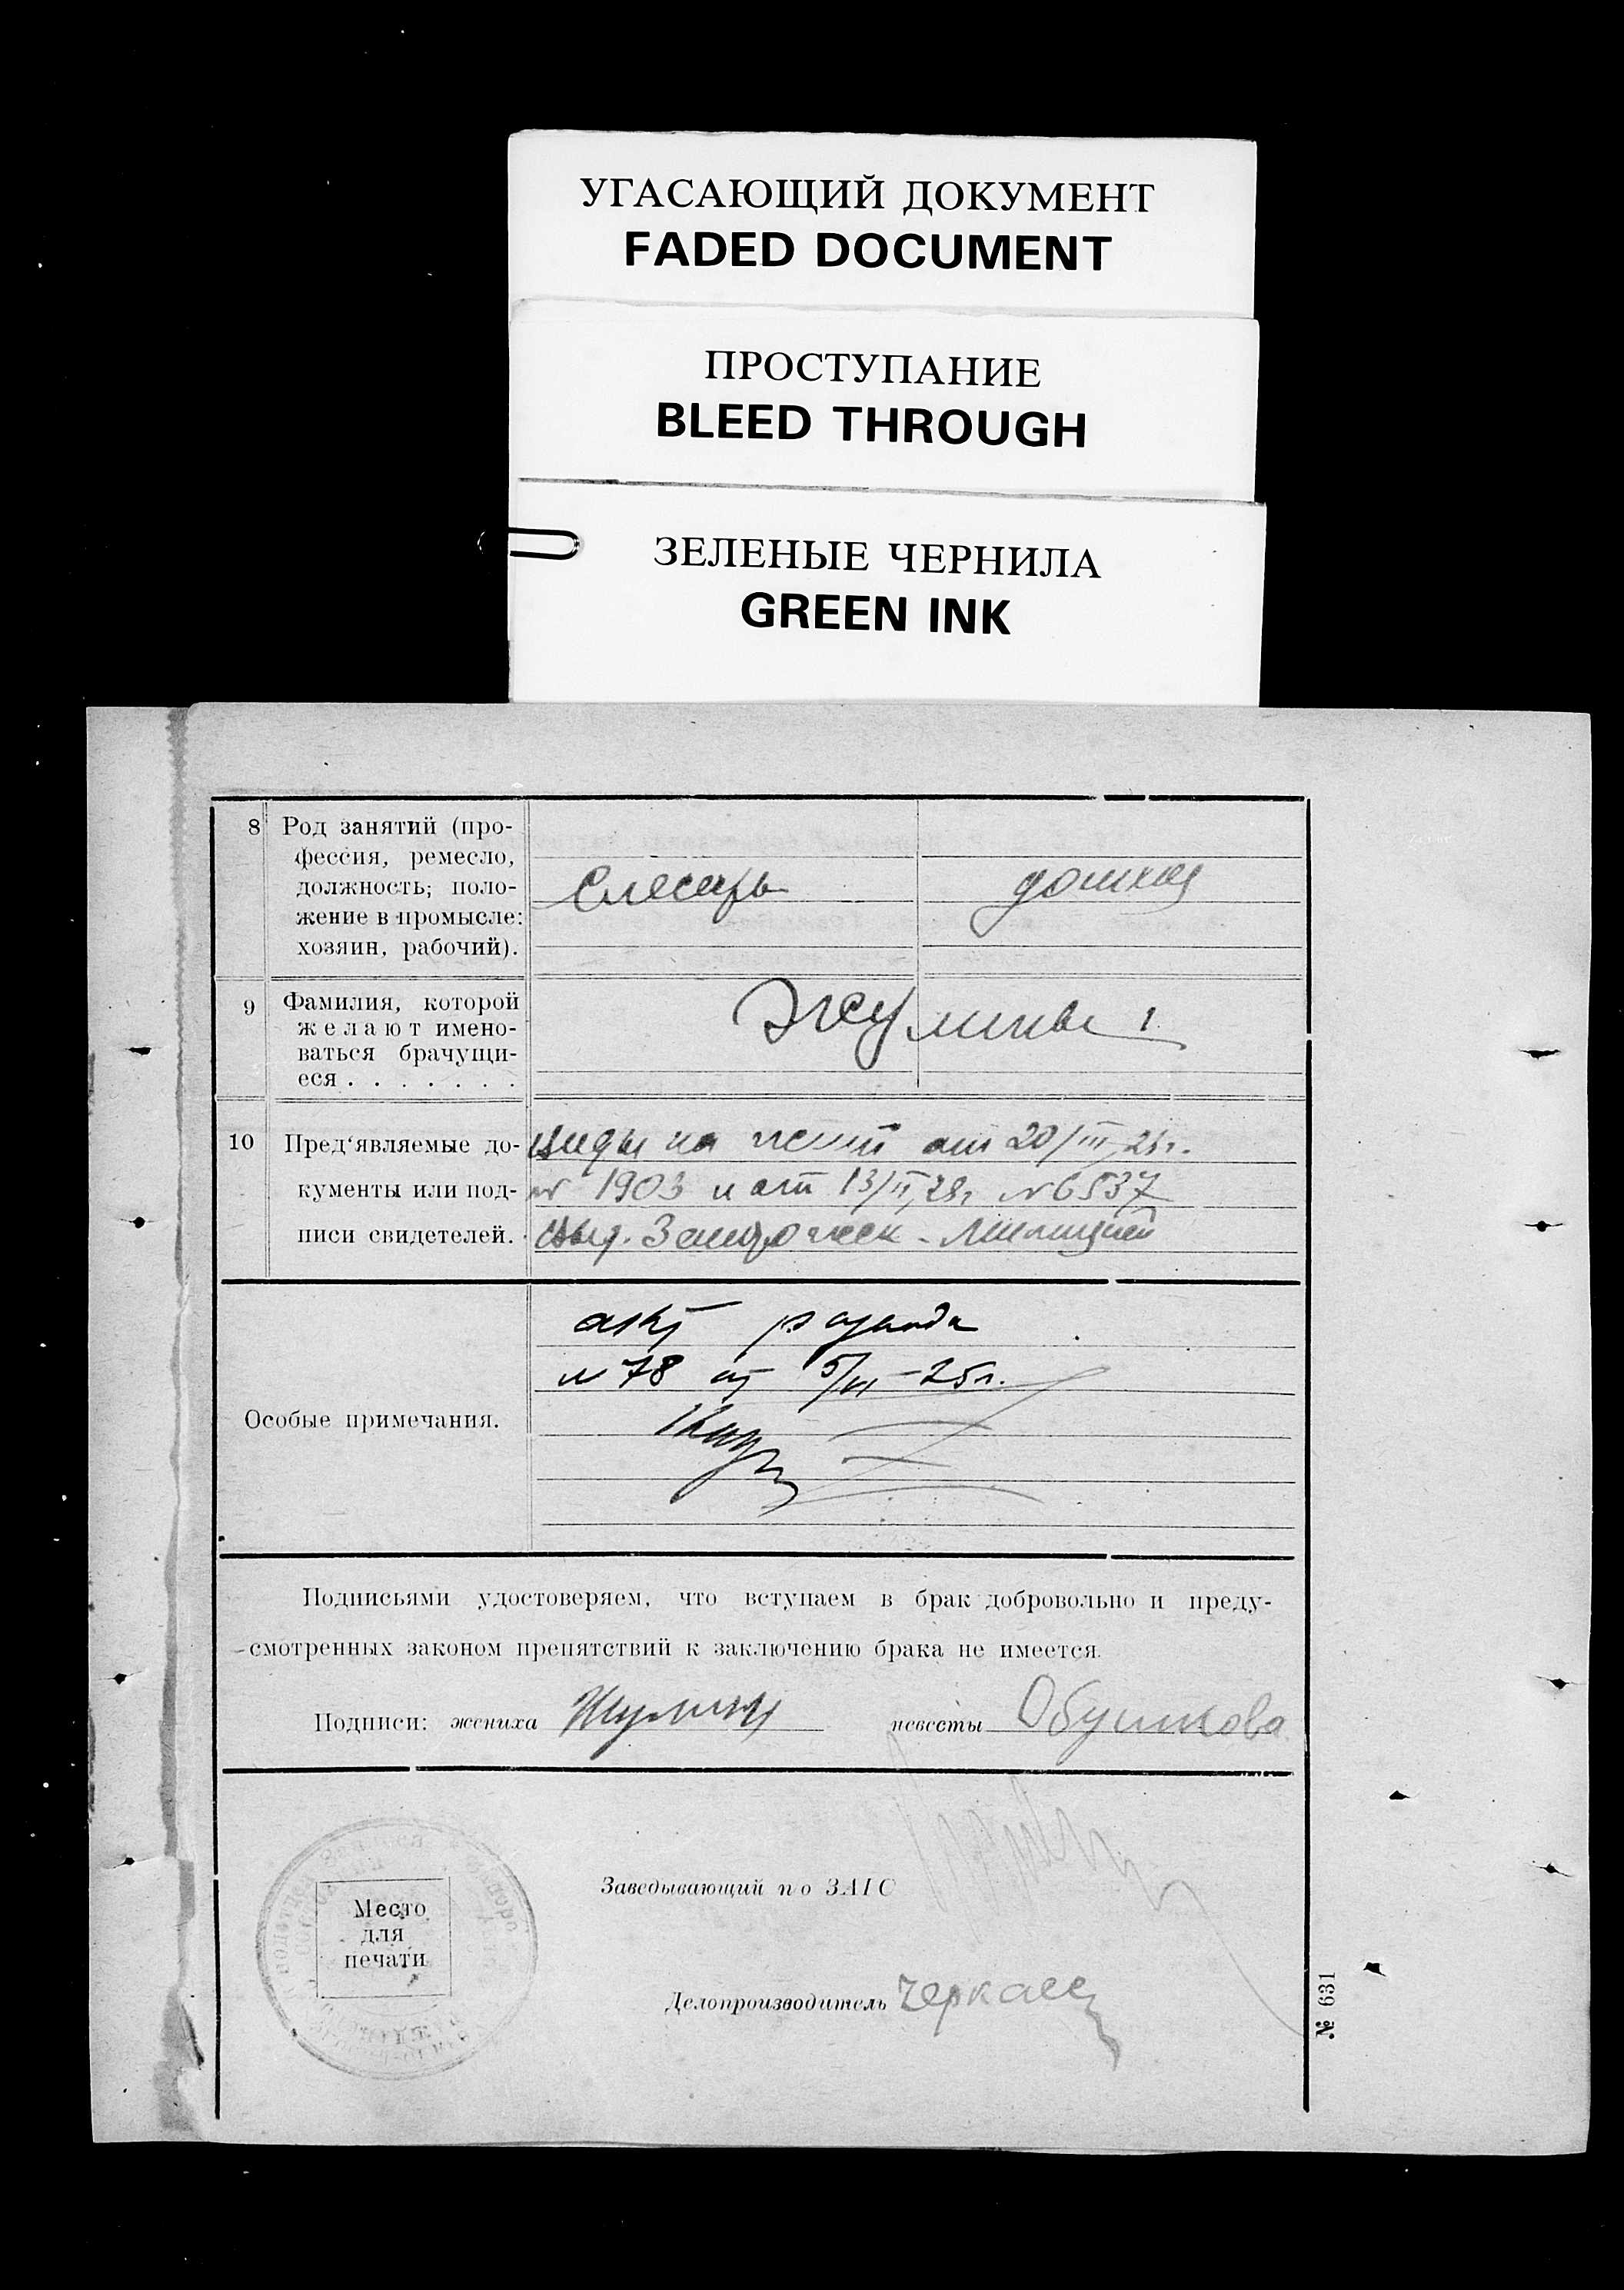 УГАСАЮЩИЙ ДОКУМЕНТ
FADED DOCUMENT
ПРОСТУПАНИЕ
BLEED THROUGH
ЗЕЛЕНЫЕ ЧЕРНИЛА
GREEN INK
8 Род занятий (про-
фессия, ремесло,
должность; поло-
жение в промысле:
хозяин, рабочий).
Слесарь
9 Фамилия, которой
желают имено-
ваться брачущи-
еся . . . . . . .
10 Пред'являемые до-
кументы или под-
писи свидетелей.
виды на от 20/III
№ 1903 и от 13/II 28г. № 6537
выд. Милицией
Особые примечания.
акт развода
№ 78 от 5/VI-25г.
Подписьями удостоверяем, что вступаем в брак добровольно и преду-
смотренных законом препятствий к заключению брака не имеется.
Подписи: жениха Жулин невесты Обушкова
Заведывающий по ЗАГС
Место
для
печати
Делопроизводитель
№ 631